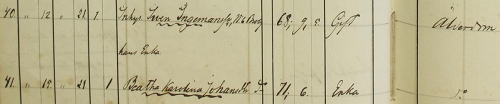 40. " 12 " 21. 1 Inhys. Swen Ingemansson, N. 68, 9, 5. Gift Ålderdom
hans Enka
41. " 15 " 21. 1 Beatha Karolina Johansdr 71, 6. Enka D:o